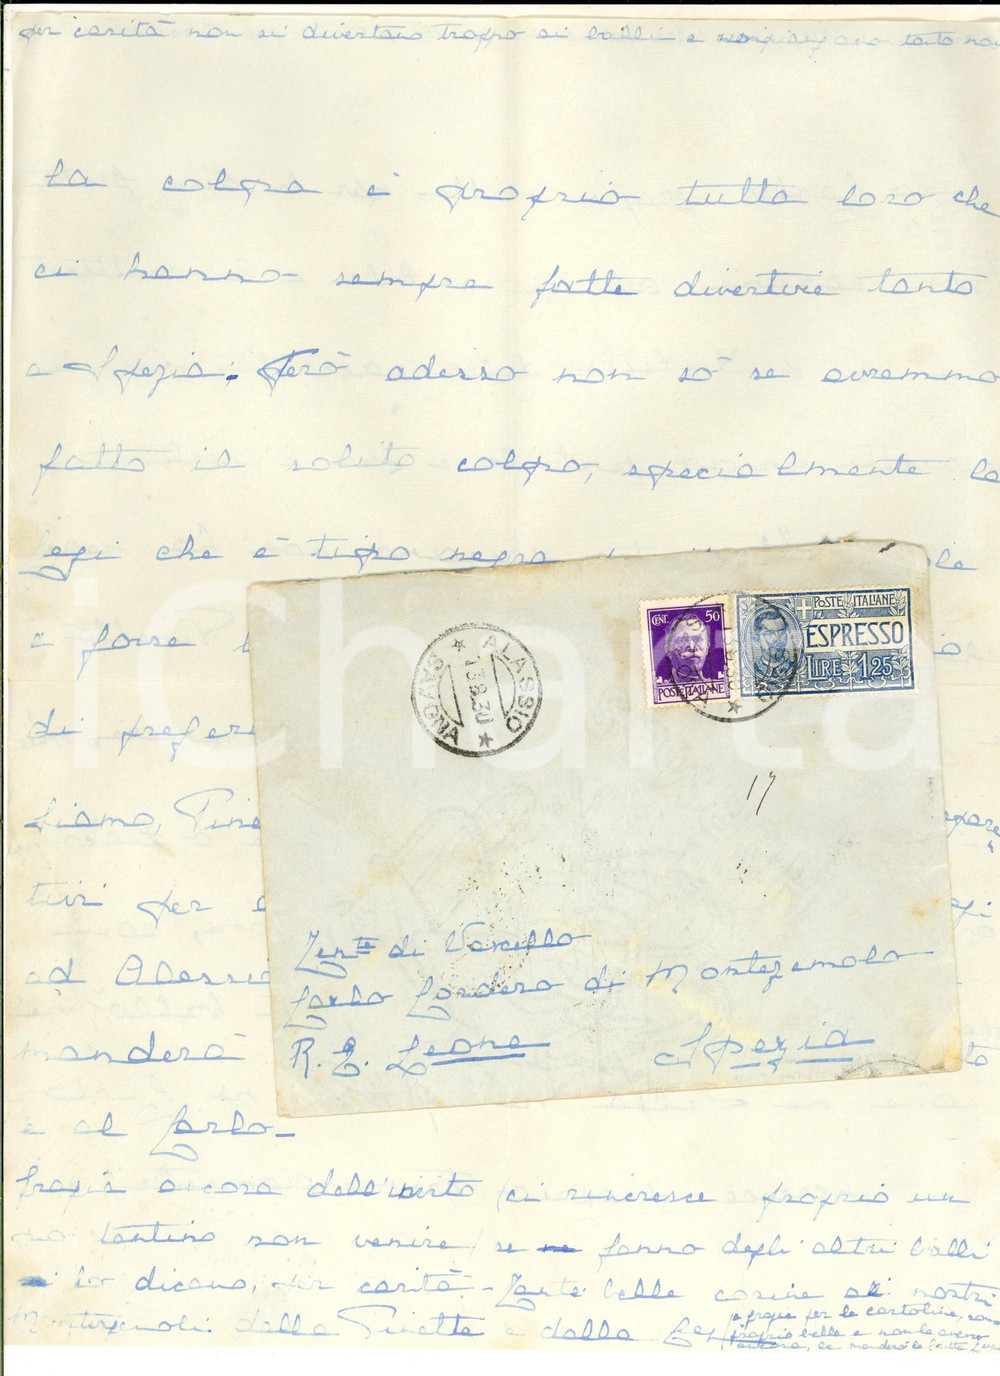 per carità non si divertano troppo ai balli e non tanto
La colpa è proprio tutta loro che
ci hanno sempre fatte divertire tanto
a Spezia; Però adesso non sò se avremmo
fatto il solito colpo, specialmente la
che è tipo
e forse
di prefer
siamo, Pine
tivi per
ad Alassio
manderà
e al Carlo-
Grazie ancora dell'invito (ci rincresce proprio un
tantino non venire) se fanno degli altri balli
lo dicano, per carità - Tante belle cosine ai nostri
Montezemoli dalla Pinetta e dalla
e grazie per le cartoline, sono
proprio belle e non le avevo
ancora, le manderò le
ALASSIO
SAVONA
13.8.30
CENT. 50
POSTE ITALIANE
POSTE ITALIANE
ESPRESSO
LIRE 1,25
17
Ten.te di Vascello
Carlo Cordero di Montezemolo
R. E. Leone Spezia
iCharta